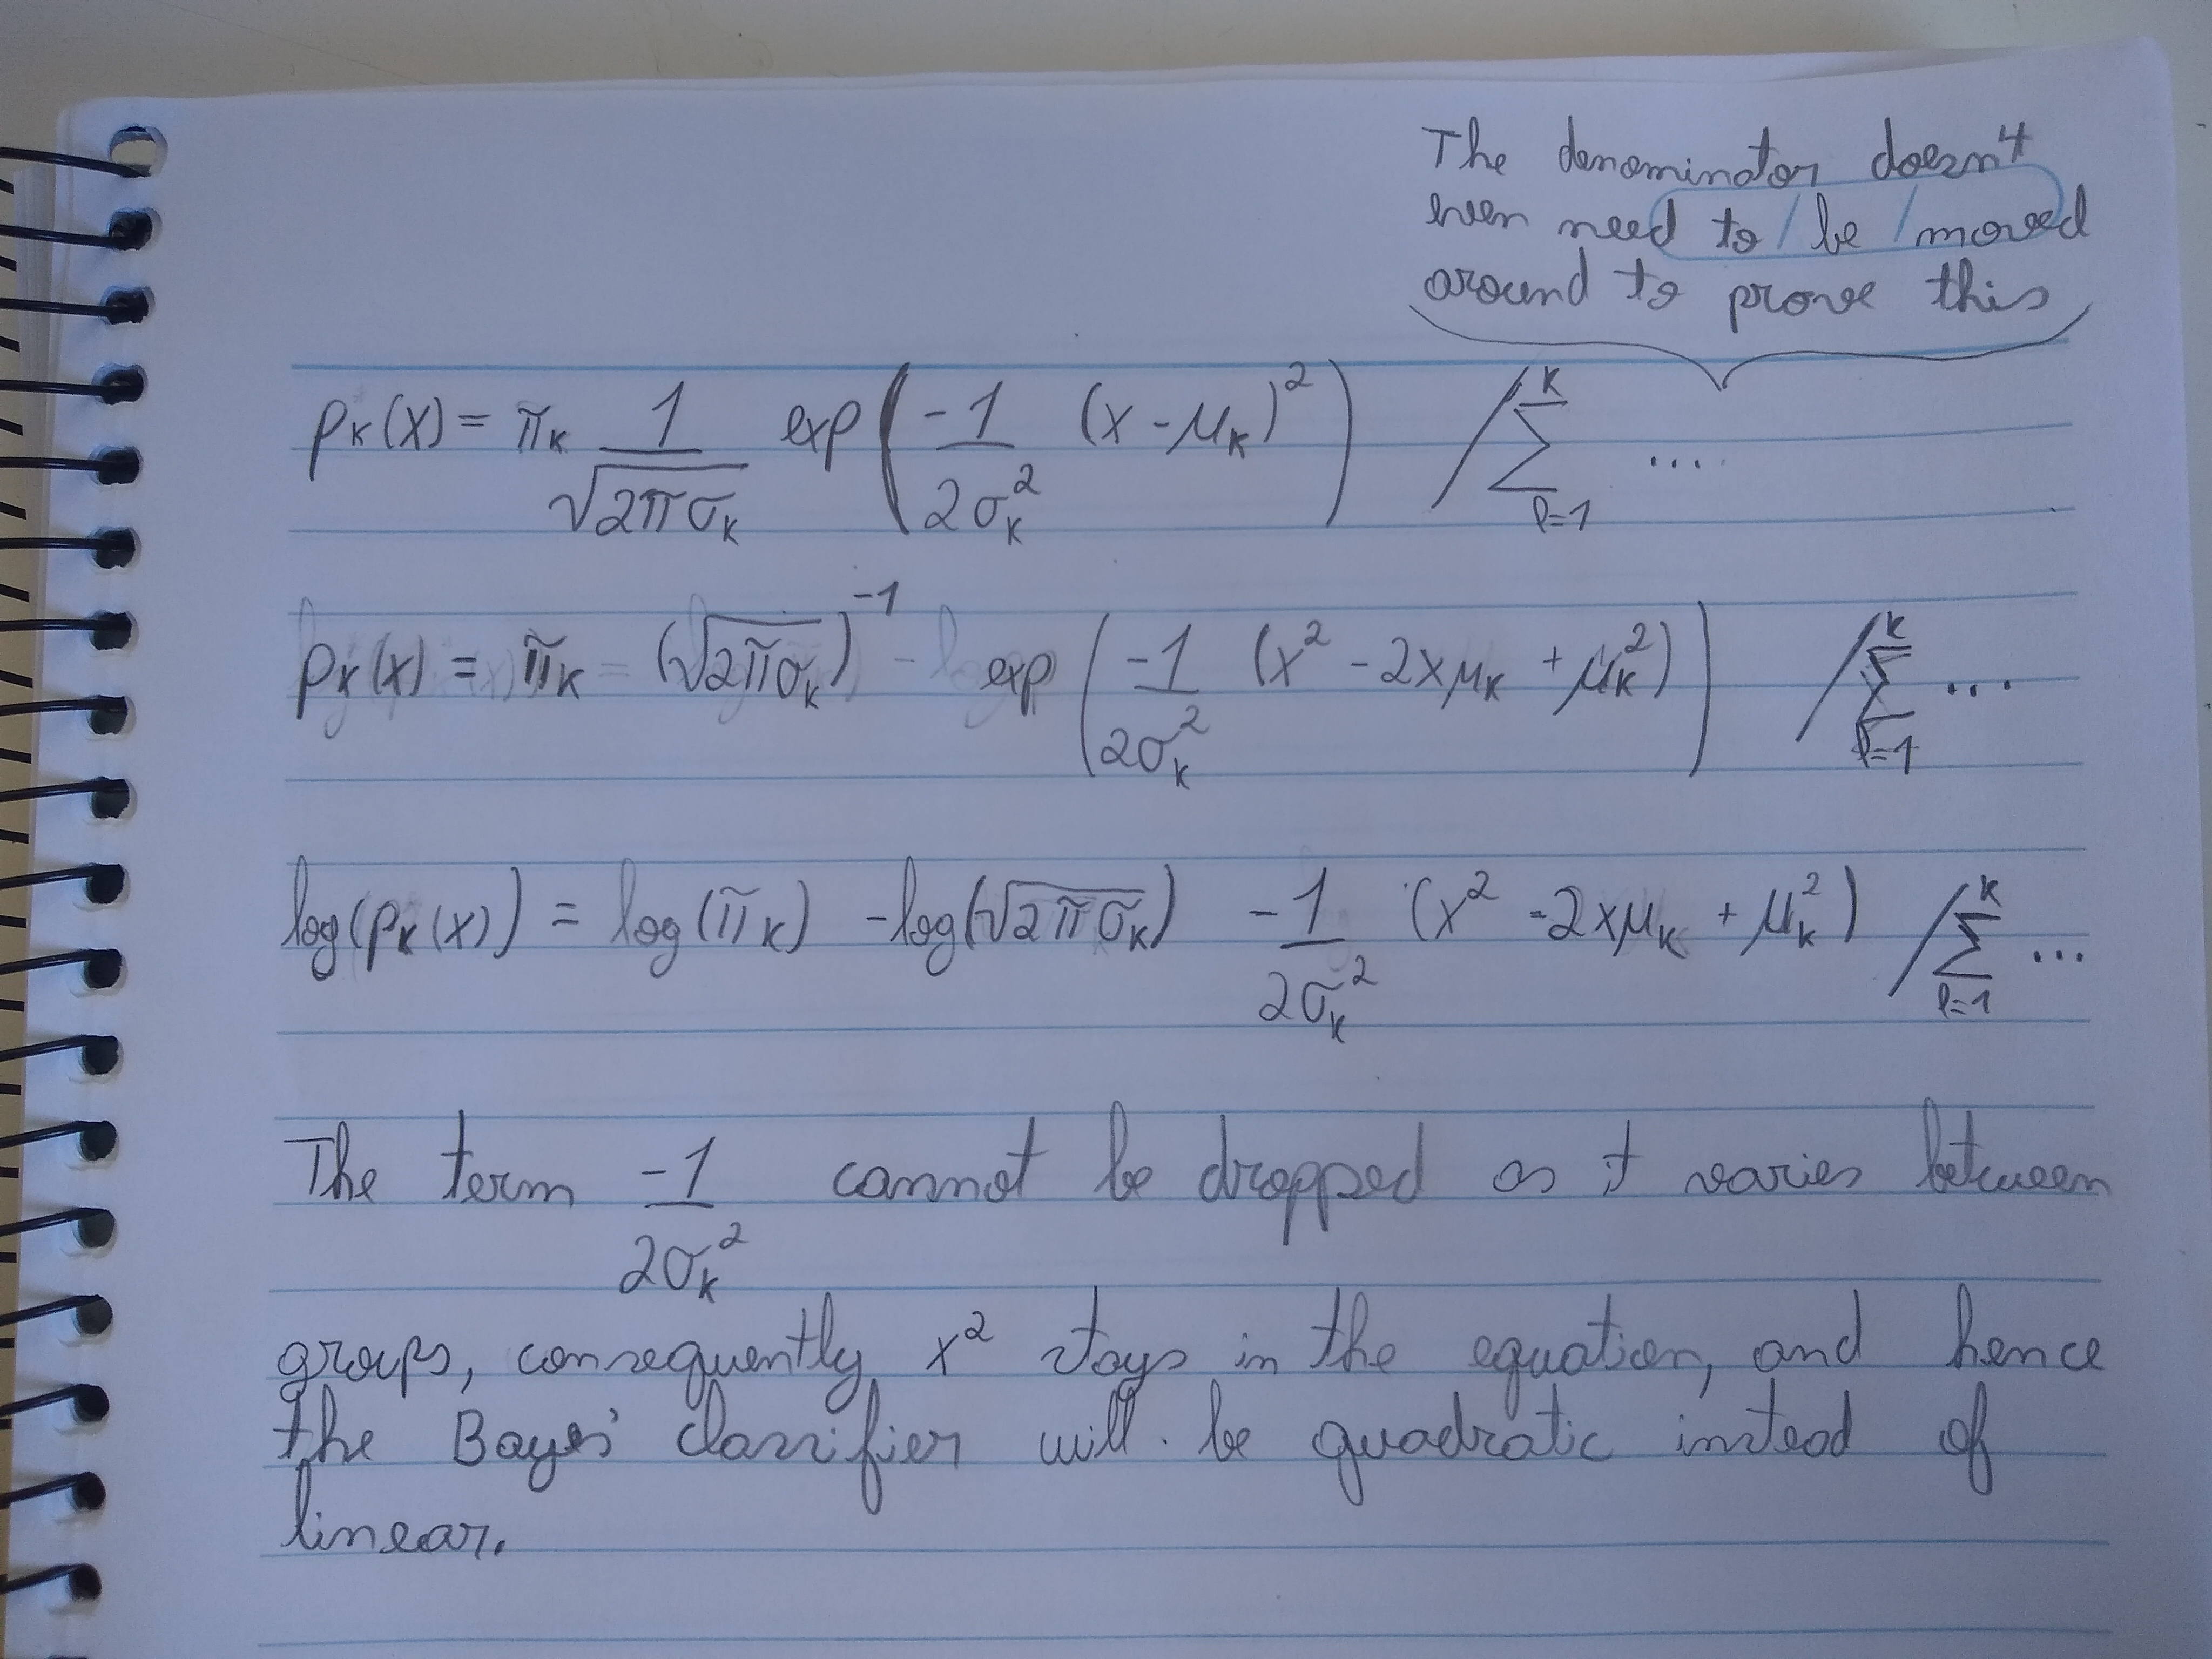 The denominator doesn't
even need to/be/moved
around to prove this
pₖ(x) = πₖ 1/√(2πσₖ) exp(-1/(2σₖ²) (x - μₖ)²) / Σ_{l=1}^{K} ....
pₖ(x) = πₖ (√(2πσₖ))⁻¹ exp(-1/(2σₖ²) (x² - 2xμₖ + μₖ²)) / Σ_{l=1}^{K} ...
log(pₖ(x)) = log(πₖ) - log(√(2πσₖ)) -1/(2σₖ²) (x² - 2xμₖ + μₖ²) / Σ_{l=1}^{K} ...
The term -1/(2σₖ²) cannot be dropped as it varies between
groups, consequently x² stays in the equation, and hence
the Bayes' classifier will be quadratic instead of
linear.